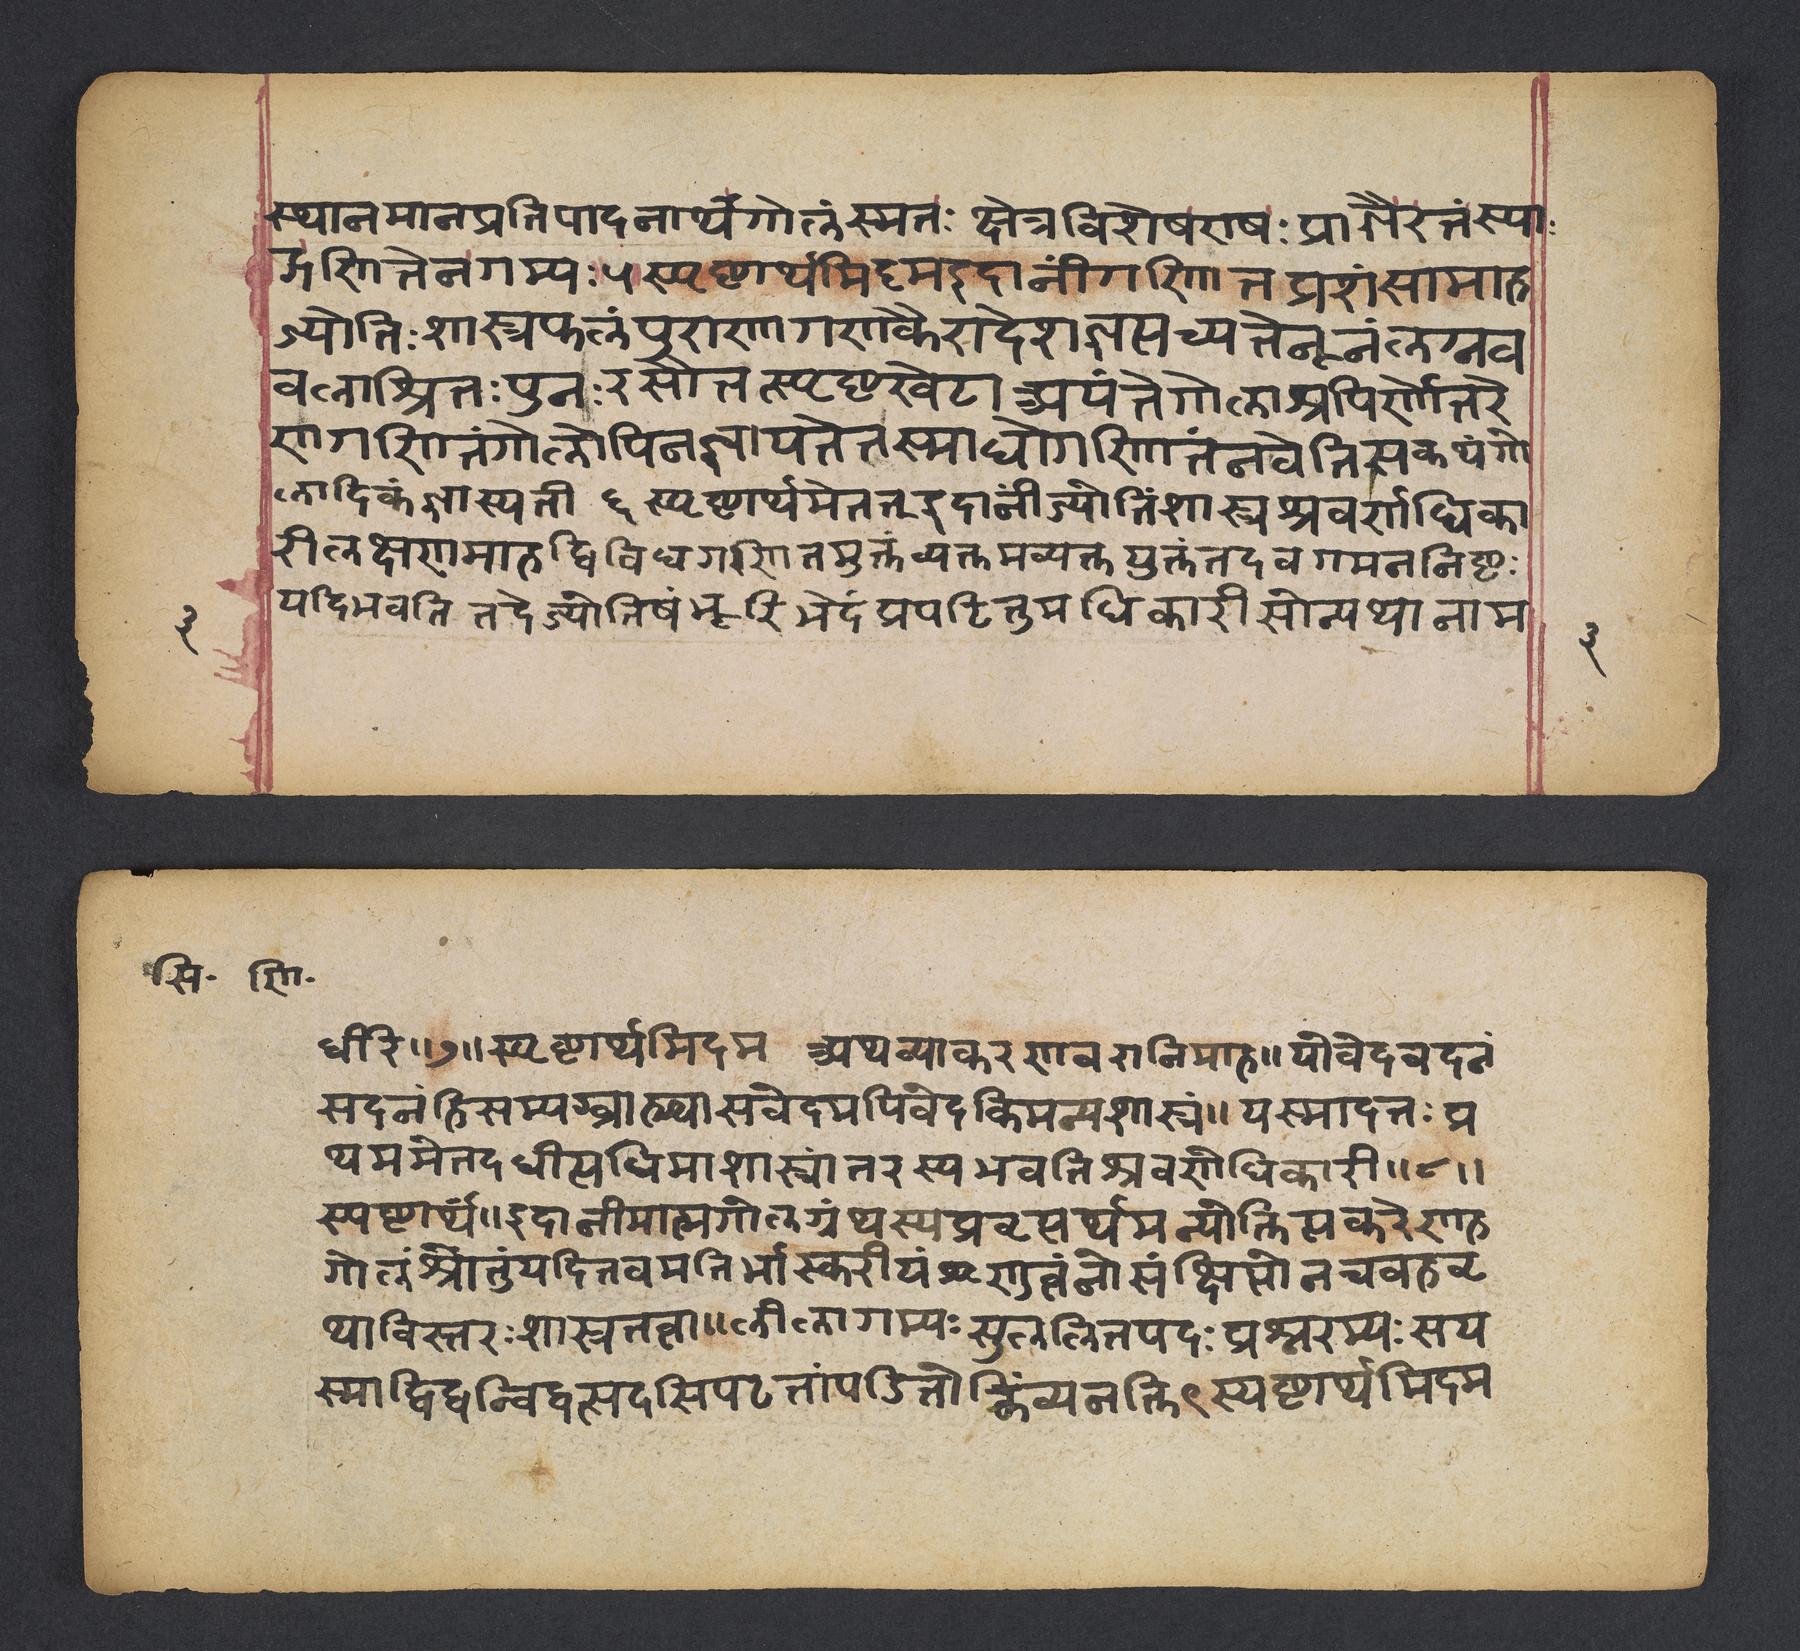 स्थानमानप्रतिपादनार्थंगोलंस्मृतः क्षेत्रविशेषएषः प्राज्ञैरतंस्या
द्गणितेनगम्यः ५ स्पष्टार्थमिदम् इदानींगणितप्रशंसामाह
ज्योतिःशास्त्रफलंपुराणगणकैरादेशइत्युच्यतेनूनंलग्नब
बलाश्रितः पुनः रसौतत्स्पष्टखेटाश्रयंतेगोलाश्रयिणोंतरे
णगणितंगोलोपिनज्ञायतेतस्माद्योगणितंनवेत्तिसकथंगो
लादिकंज्ञास्यती ६ स्पष्टार्थमेतत् इदानींज्योतिंशास्त्रश्रवर्णाधिका
रीलक्षणमाह द्विविधगणितमुक्तंव्यक्तमव्यक्तयुक्तंतदवगमननिष्ठः
यदिभवति तदेज्योतिषंभूरिभेदंप्रपठितुमधिकारीसोन्यथानाम
३ ३
सि॰ शि॰
धीरि॥७॥स्पष्टार्थमिदम अथव्याकरणवर्णनिमाह॥योवेदवदनं
सदनंहिसम्यग्ब्राह्म्यासवेदमपिवेदकिमन्यशास्त्रं॥यस्मादतः प्र
थममेतदधीत्यधिमाशास्त्रांतरस्यभवतिश्रवणेधिकारी॥८॥
स्पष्टार्थं॥इदानीमात्मगोलग्रंथस्यप्रवृत्यर्थमन्योक्तिप्रकरेणाह
गोलंश्रोतुंयदितवमतिर्भास्करीयंशृणुत्वंनोसंक्षिप्तोनचबहुवृ
थाविस्तरःशास्त्रतत्वा॥लीलागम्यः सुललितपदः प्रश्नरम्यः सय
स्माद्विद्वन्विद्वत्सदसिपठतांपंडितोक्तिंव्यनक्ति९ स्पष्टार्थमिदम